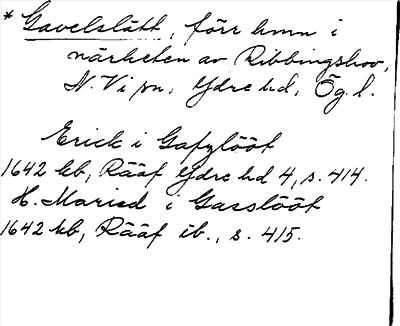 * Gavelslätt, förr hmn i
närheten av Ribbingshov,
N. Vi sn, Ydre hd, Ög. l.
Erick i Gafzlööt
1642 kb, Rääf Ydre hd 4, s. 414.
H. Maried i Gasslööt
1642 kb, Rääf ib., s. 415.